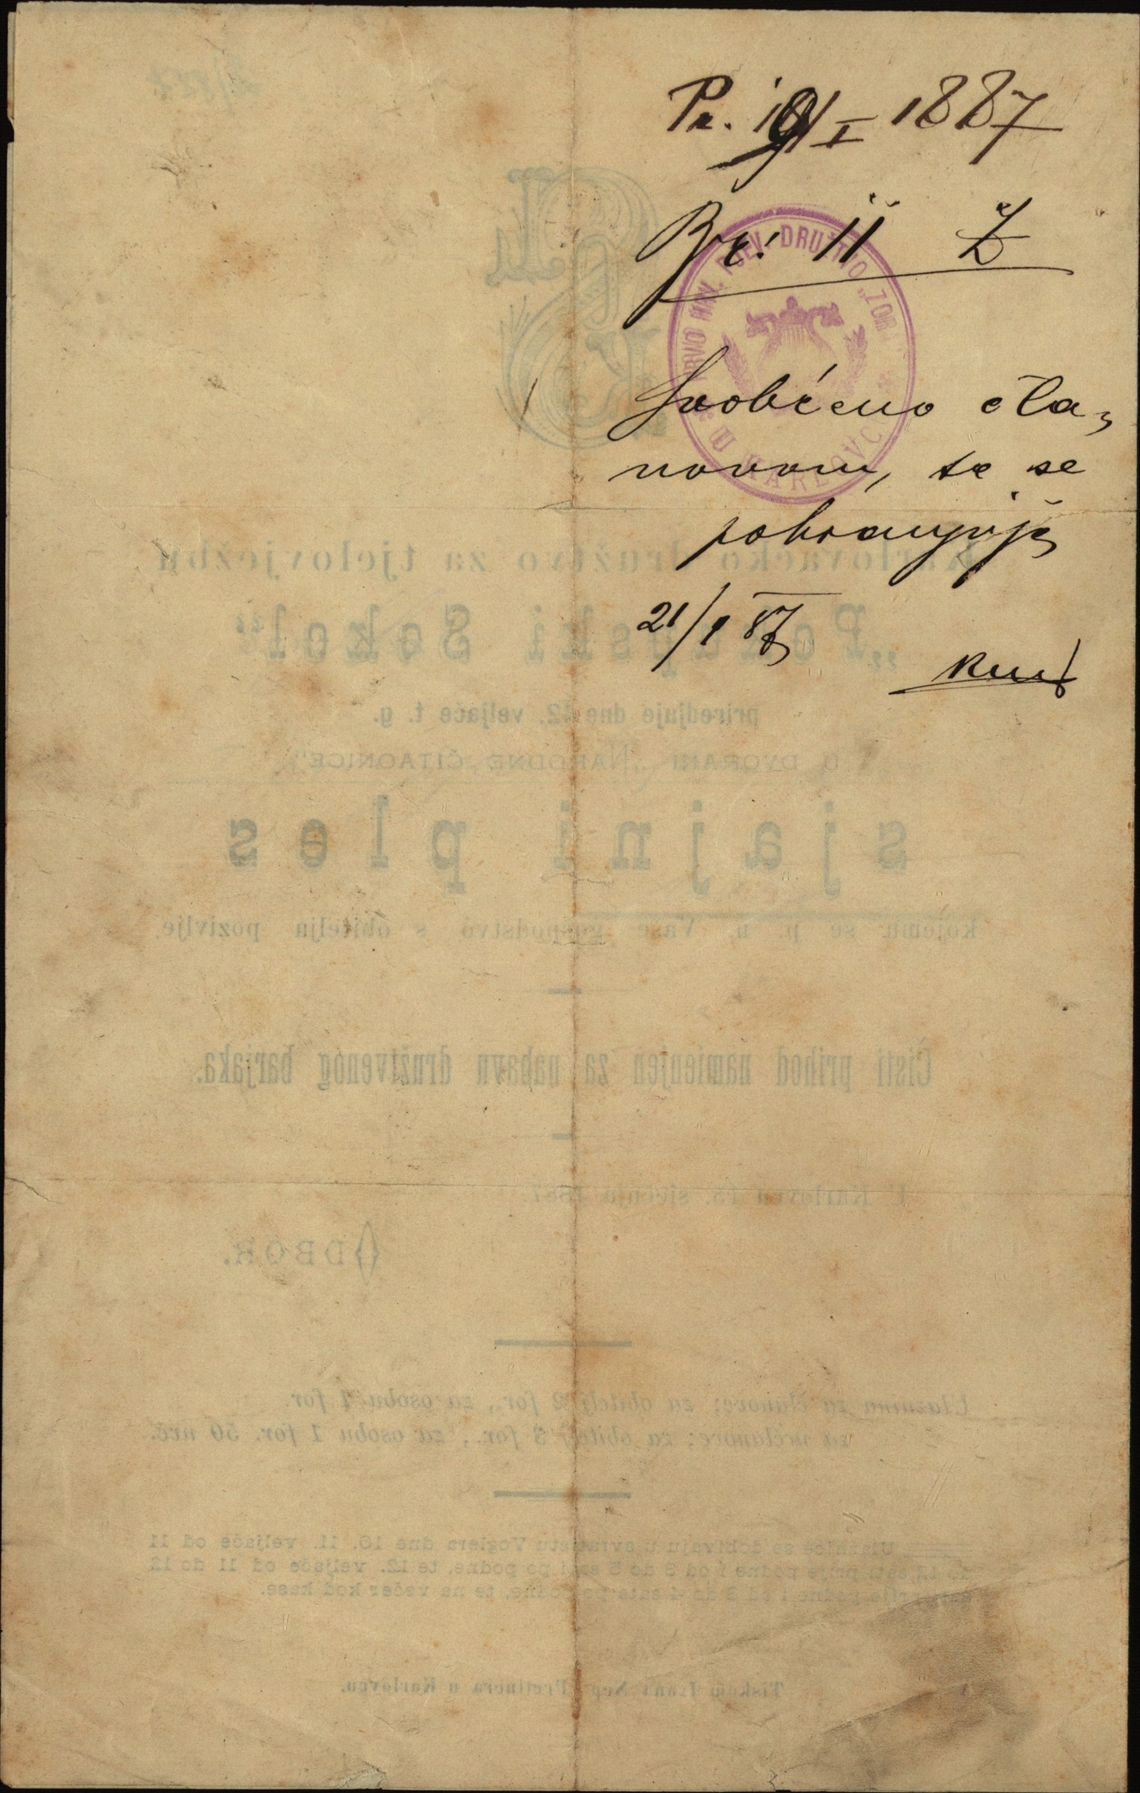 Pr. 19/I 1887
Br. 11 Ž
PRVO HRV. PJEV. DRUŽTVO „ZORA"
U KARLOVCU
Saobćeno čla-
novom, te se
pohranjuje
21/1 87
Karlovačko družtvo za tjelovježbu
„Pokupski Sokol"
priredjuje dne 12. veljače t. g.
U DVORANI „NARODNE ČITAONICE"
sjajni ples
kojemu se p. n. Vaše gospodstvo s obitelju pozivlje.
Čisti prihod namienjen za nabavu družtvenog barjaka.
U Karlovcu 15. siečnja 1887.
ODBOR.
Ulaznina za članove: za obitelj 2 for., za osobu 1 for.
za nečlanove: za obitelj 3 for., za osobu 1 for. 50 nvč.
Ulaznice se dobivaju u svratištu Voglera dne 10. 11. veljače od 11
do 12 sati prije podne i od 3 do 5 sati po podne, te 12. veljače od 11 do 12
sati prije podne i od 3 do 4 sata po podne, te na večer kod kase.
Tiskom Ivana Nep. Prettnera u Karlovcu.